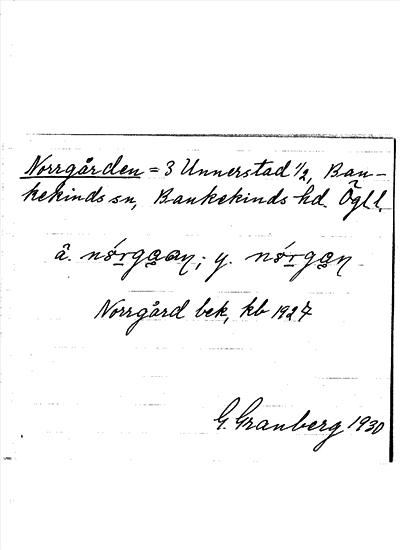 Norrgården = 3 Unnerstad 1/2, Ban-
kekinds sn, Bankekinds hd. Ögl.
â. nǿrgaan; y. nǿrgan
Norrgård bek, kb 1927
G. Granberg 1930